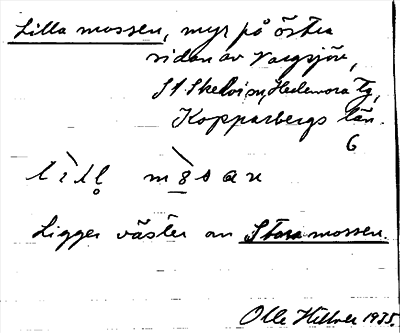 Lilla mossen, myr på östra
sidan av Vargsjön,
St. Skedvi sn, Hedemora tg,
Kopparbergs län.
6
Ligger väster om Stora mossen.
Olle Hellver 1935.